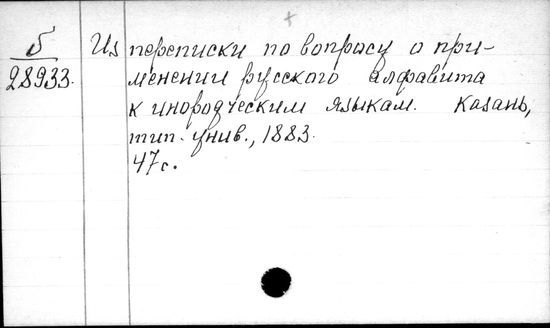 Б
28933.
Из переписки по вопросу о при-
менении русского алфавита
к инородческим языкам. Казань,
тип. унив., 1883.
47 с.